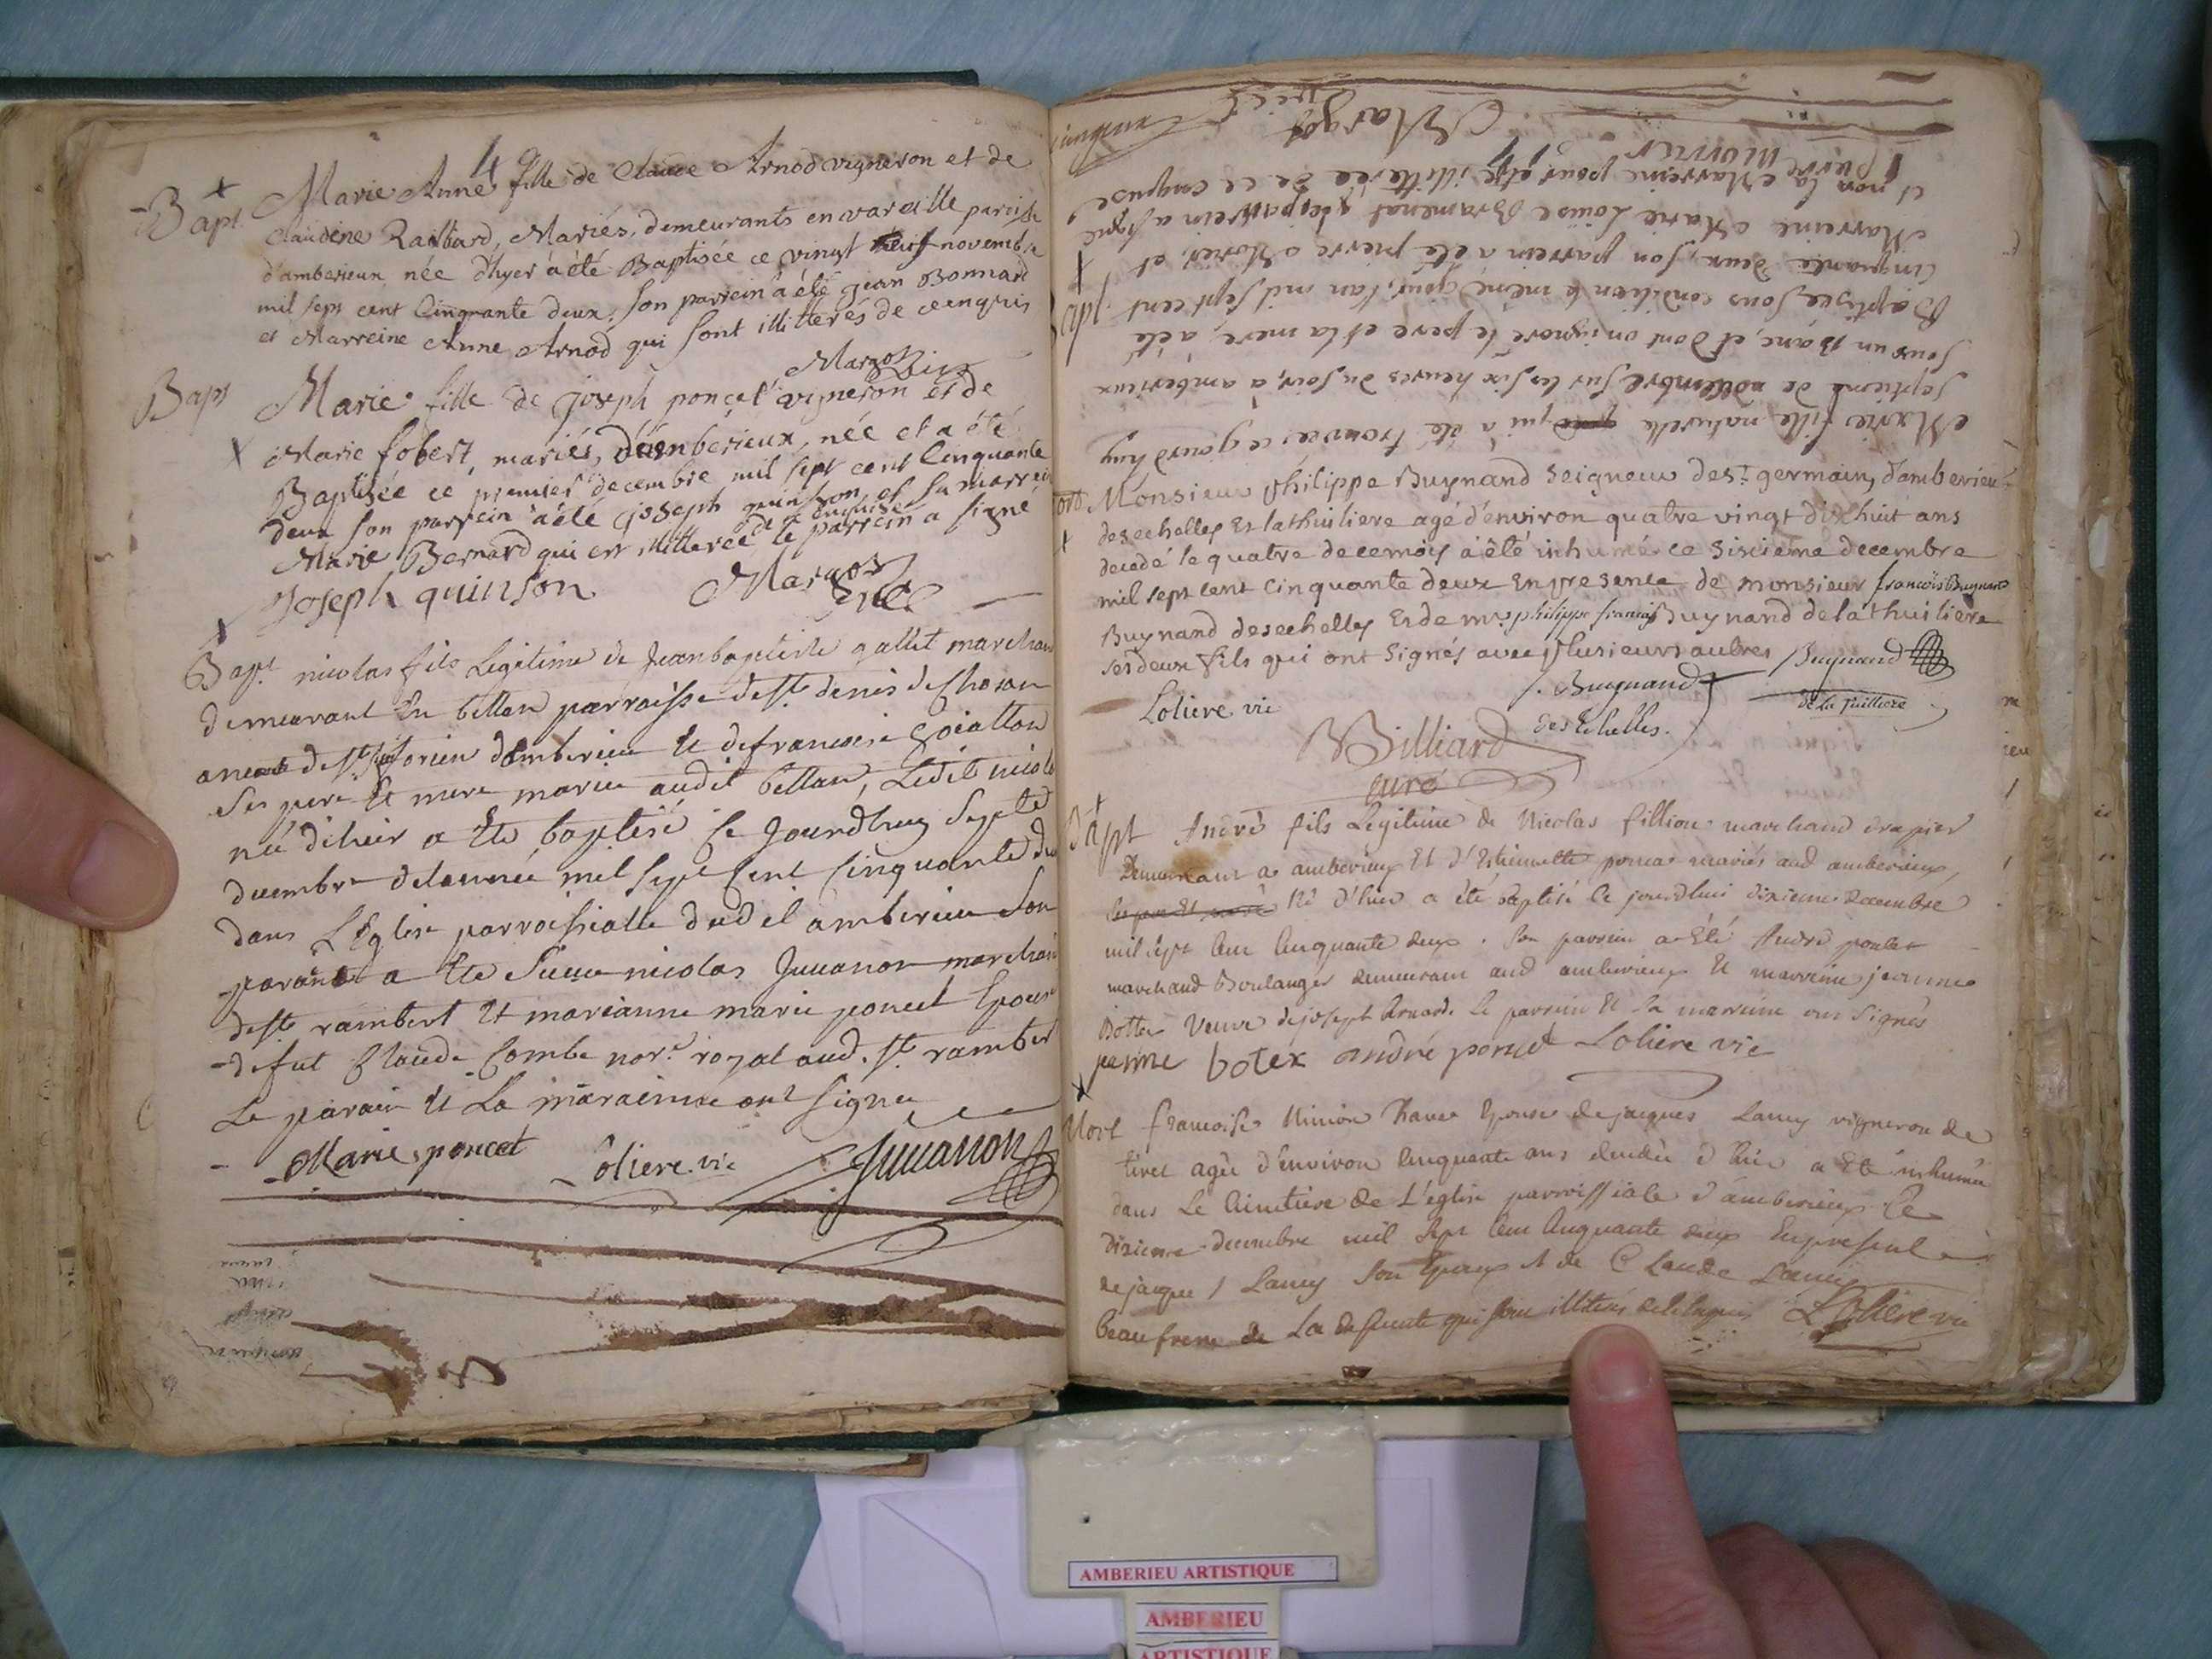 4
Bapt Marie Anne fille de Claude Arnod vigneron et de
Claudine Raibard, Mariés, demeurants en vareille paroisse
d'amberieux née d'hyer à été Baptisée ce vingt neuf novembre
mil sept cent Cinquante deux. Son parrein à été jean Bonnard
et Marreine Anne Arnod qui sont illitterés de ce enquis
Margot vict
Bapt Marie fille de joseph ponçet vigneron et de
Marie fobert, mariés, d'amberieux, née et a été
Baptisée ce premier decembre mil sept cent Cinquante
deux son parrein à été joseph quinson et sa marreine
Marie Bernard qui est illitterée de ce enquise le parrein a signé
Joseph quinson Margot vict
Bapt nicolas fils Legitime de Jean baptiste gallet marchand
demeurant En bettan parroisse de st denis de Chosan
annexe de st siforien dambericu Et de francoise
Ses pere Et mere maries audit bettan, Ledit nicolas
né dihier a Ete baptisé Ce Jourdhuy Sept
decembre delannée mil Sept Cent Cinquante deux
dans LEglise parroissialle dudit ambericu Son
parain a Ete Sieur nicolas Juuanon marchand
de st rambert Et marianne marie poncet Epouse
defut Claude Combe nore royal aud. st rambert
Le parain Et La maraine ont Signé
Marie poncet Loliere vic Juuanon
Margot vict
pierre Morier
et non la Marreine pour être illitterée de ce enquise
Marreine Marie Loüise Bramenat le parrein a signé
Cinquante deux, son parrein a été pierre Morier, et
Baptisée sous condition le même jour, l'an mil sept cent
sous un Banc, et dont on ignore le pere et la mere, à été
septieme de decembre sur les six heures du soir, à amberieux
Marie fille naturelle qui a été trouvée ce jourdhuy
Mort Monsieur Philippe Buynand Seigneur de st germain, d'amberieu
des echelles Et lathuiliere agé d'environ quatre vingt dix huit ans
decedé le quatre de ce mois a été inhumé ce Sixieme decembre
mil sept cent Cinquante deux En presence de monsieur francois Buynand
Buynand des echelles Et de mr philippe francois Buynand de la thuiliere
ses deux fils qui ont Signés avec plusieurs autres Buynand
Loliere vic Buynand des Echelles. de La Juilliere
Billiard
curé
Bapt André fils Legitime de Nicolas fillion marchand drapier
Demeurant a amberieux Et d'Etiennette poncet mariés aud amberieux,
Né d'hier a été Baptisé Ce jourdhui dixieme decembre
mil sept Cent Cinquante deux. Son parrein a Eté André poncet
marchand Boulanger demeurant aud amberieux Et marreine jeanne
Bottex Veuve de joseph Le parrein Et La marreine ont Signés
jeanne botex andré poncet Loliere vic
Mort francoise Epouse de jacques Lamy vigneron de
tiret agée d'environ Cinquante ans decedée d'hier a Eté inhumée
dans Le Cimetiere de L'eglise parroissiale d'amberieux Le
dixieme decembre mil Sept Cent Cinquante deux En presence
de jacques Lamy Son Epoux et de Claude Lamy
beaufrere de La defunte qui sont illiterés de ce enquis Loliere vic
AMBERIEU ARTISTIQUE
AMBERIEU
ARTISTIQUE